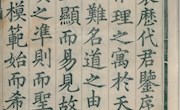 衷歷代君鑒序
理之寓於天
難名道之
顯而易見故
之準則而聖
模範始而希